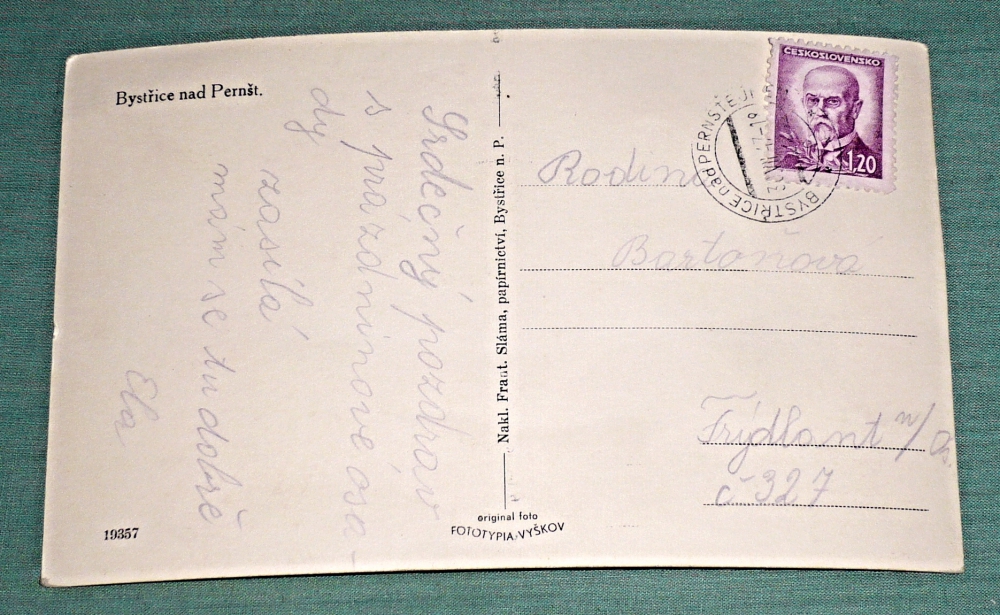 Bystřice nad Pernšt.
Srdečný pozdrav
s prázdninové osa-
dy
zasílá
mám se tu dobře
Ela
19357
Nakl. Frant. Sláma, papírnictví, Bystřice n. P.
original foto
FOTOTYPIA, VYŠKOV
ČESKOSLOVENSKO
1,20
BYSTŘICE nad PERNŠTEJ
Rodina
Bartoňová
Frýdlant n/O.
č 327